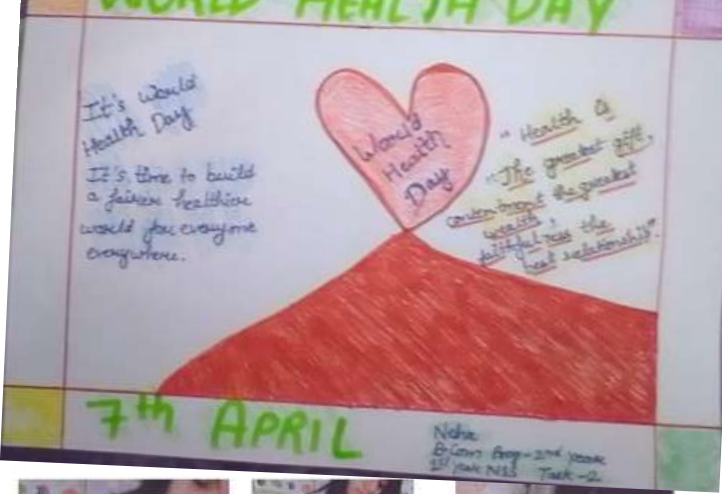 WORLD HEALTH DAY
It's World
Health Day
It's time to build
a fairer healthier
world for everyone
everywhere.
World
Health
Day
" Health is
"The greatest gift,
contentment the greatest
wealth,
faithfulness the
best relationship".
7th APRIL
Neha
B.Com Prog - 2nd year
1st year NSS Task-2